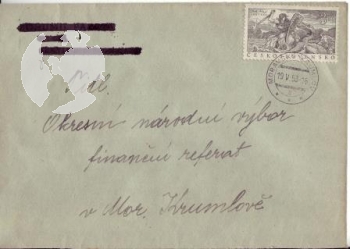 ČESKOSLOVENSKO
Okresní národní výbor
finanční referát
v Mor. Krumlově